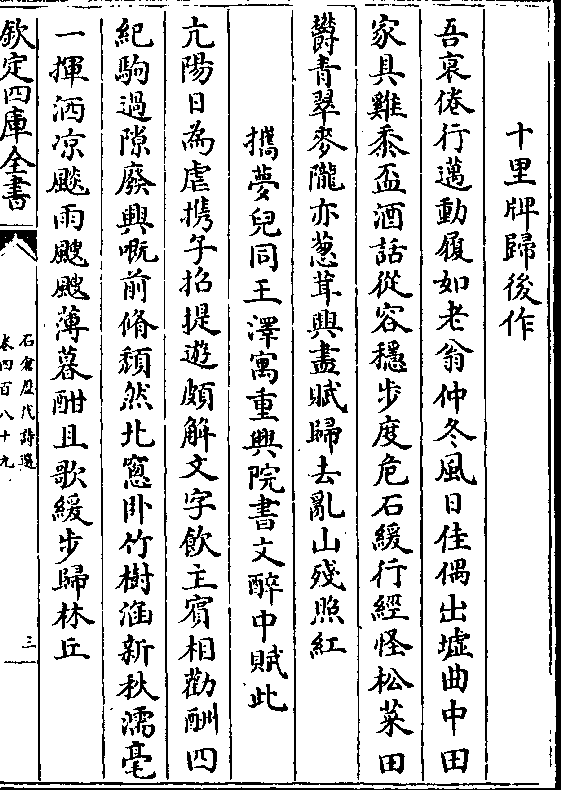 十里牌歸後作
吾哀倦行邁動履如老翁仲冬風日佳偶出墟曲中田
家具雞黍盃酒話從容穩步度危石緩行經怪松菜田
欝青翠麥隴亦葱茸興盡賦歸去亂山殘照紅
擕夢兒同王澤寓重興院書文醉中賦此
亢陽日為虐携乎招提遊頗解文字飲主賓相勸酬四
紀駒過隙廢興嘅前脩頹然北窻卧竹樹涵新秋濡毫
一揮洒凉飈雨颼颼薄暮酣且歌緩步歸林丘
欽定四庫全書
石倉歷代詩選
卷四百八十九
三